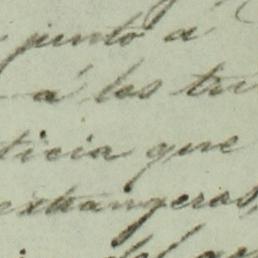 junto á
á las tri
ticia que
extrangeras,
del